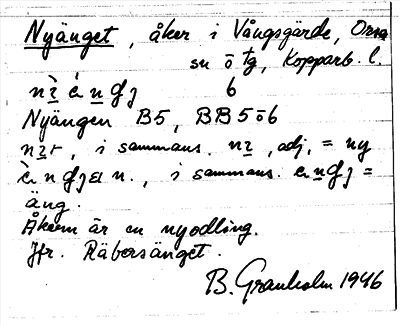 Nyänget, åker i Vångsgärde, Orsa
sn o tg, Kopparb. l.
6
Nyängen B5, BB5 o 6
, i sammans. , adj. = ny
n., i sammans. =
äng.
Åkern är en nyodling.
Jfr. Räbersänget.
B. Granholm 1946